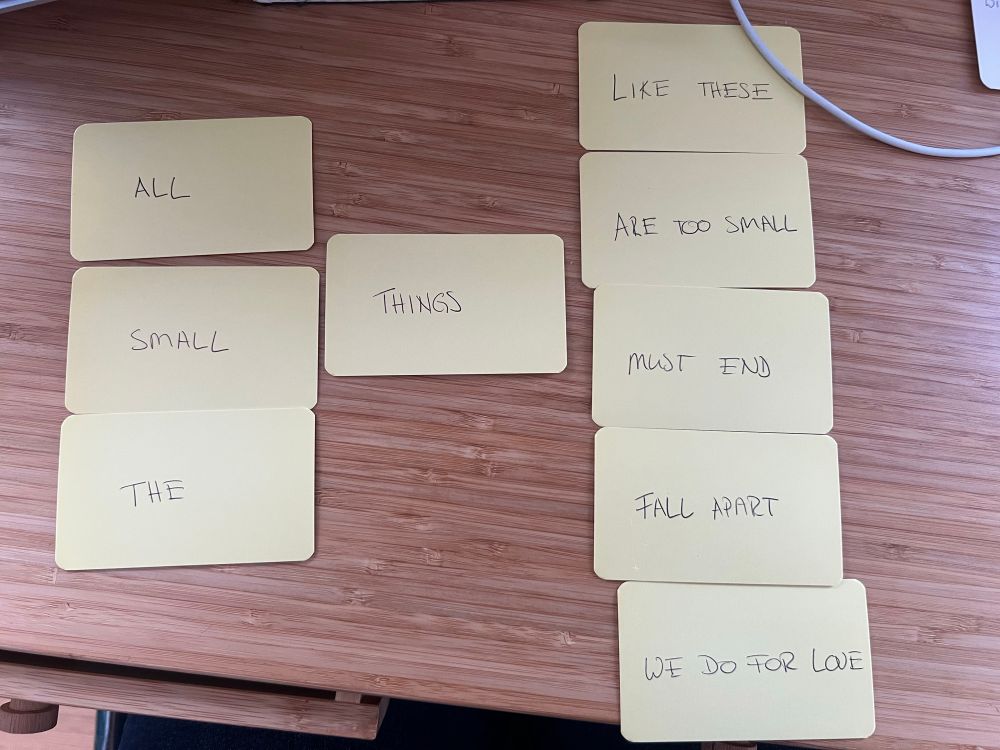 ALL
SMALL
THE
THINGS
LIKE THESE
ARE TOO SMALL
MUST END
FALL APART
WE DO FOR LOVE